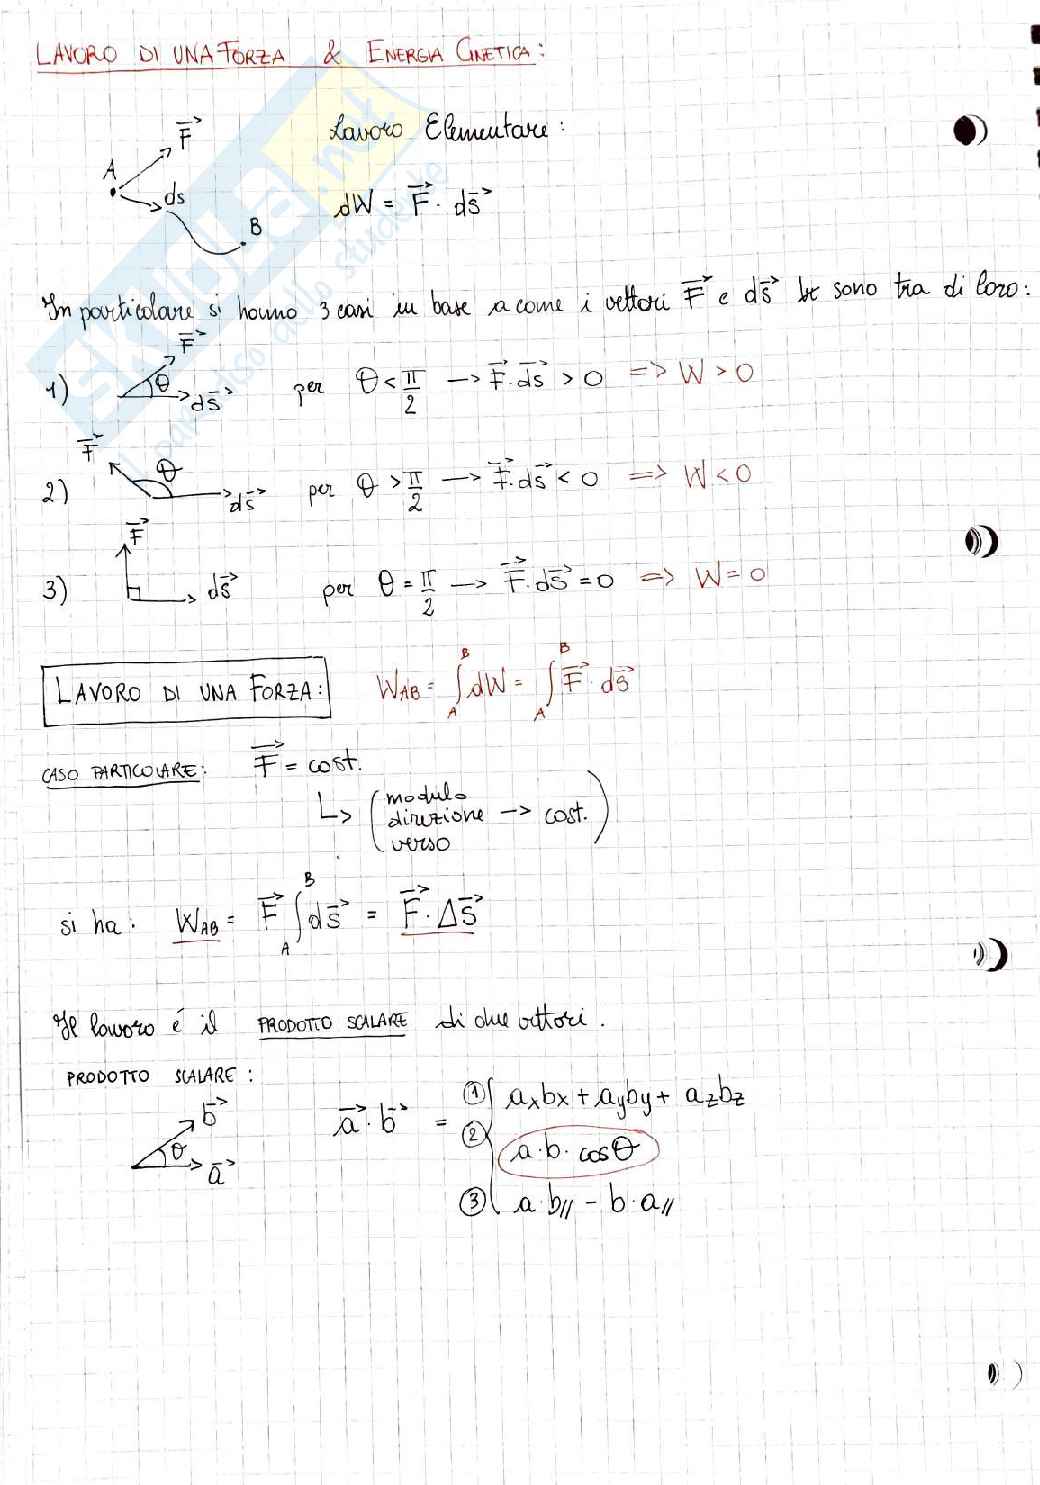 LAVORO DI UNA FORZA & ENERGIA CINETICA:
Lavoro Elementare:
A F⃗ ds B
dW = F⃗ · ds⃗
In particolare si hanno 3 casi in base a come i vettori F⃗ e ds⃗ sono tra di loro:
1) F⃗ θ ds⃗ per θ < π/2 → F⃗ · ds⃗ > 0 => W > 0
2) F⃗ θ ds⃗ per θ > π/2 → F⃗ · ds⃗ < 0 => W < 0
3) F⃗ ds⃗ per θ = π/2 → F⃗ · ds⃗ = 0 => W = 0
LAVORO DI UNA FORZA: W_AB = ∫_A^B dW = ∫_A^B F⃗ · ds⃗
CASO PARTICOLARE: F⃗ = cost.
↳ (modulo
direzione → cost.)
verso
si ha: W_AB = F⃗ ∫_A^B ds⃗ = F⃗ · Δs⃗
Il lavoro é il PRODOTTO SCALARE di due vettori.
PRODOTTO SCALARE:
b⃗ θ a⃗
a⃗ · b⃗ =
① axbx + ayby + azbz
② a · b · cosθ
③ a · b// - b · a//
skuola.net
il paradiso dello studente